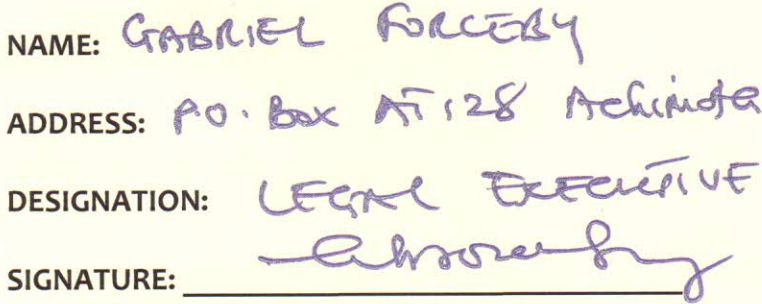 NAME: GABRIEL FORCEBY
ADDRESS: P.O. Box AT 128 Achimota
DESIGNATION: LEGAL EXECUTIVE
SIGNATURE: